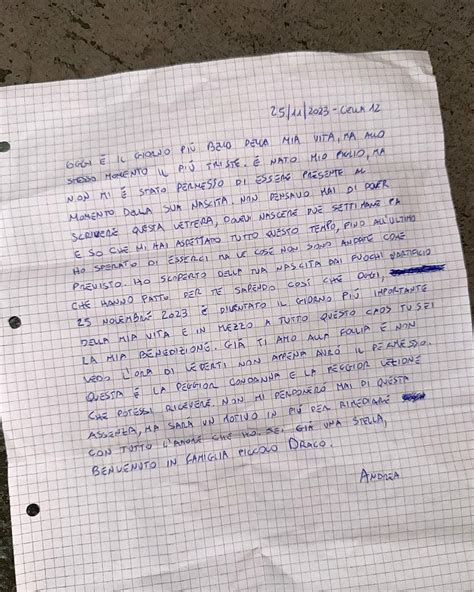 25/11/2023 - CELLA 12
OGGI È IL GIORNO PIÙ BELLO DELLA MIA VITA, MA ALLO
STESSO MOMENTO IL PIÙ TRISTE. È NATO MIO FIGLIO, MA
NON MI È STATO PERMESSO DI ESSERE PRESENTE AL
MOMENTO DELLA SUA NASCITA. NON PENSAVO MAI DI DOVER
SCRIVERE QUESTA LETTERA, DOVEVI NASCERE DUE SETTIMANE FA
E SO CHE MI HAI ASPETTADO TUTTO QUESTO TEMPO, FINO ALL'ULTIMO
HO SPERATO DI ESSERCI MA LE COSE NON SONO ANDATE COME
PREVISTO. HO SCOPERTO DELLA TUA NASCITA DAI FUOCHI D'ARTIFICIO
CHE HANNO FATTO PER TE SAPENDO COSÌ CHE OGGI,
25 NOVEMBRE 2023 È DIVENTATO IL GIORNO PIÙ IMPORTANTE
DELLA MIA VITA E IN MEZZO A TUTTO QUESTO CAOS TU SEI
LA MIA BENEDIZIONE. GIÀ TI AMO ALLA FOLLIA E NON
VEDO L'ORA DI VEDERTI NON APPENA AVRÒ IL PERMESSO.
QUESTA È LA PEGGIOR CONDANNA E LA PEGGIOR LEZIONE
CHE POTESSI RICEVERE. NON MI PERDONERÒ MAI DI QUESTA
ASSENZA, MA SARÀ UN MOTIVO IN PIÙ PER RIMEDIARE
CON TUTTO L'AMORE CHE HO. SEI GIÀ UNA STELLA,
BENVENUTO IN FAMIGLIA PICCOLO DRACO.
ANDREA